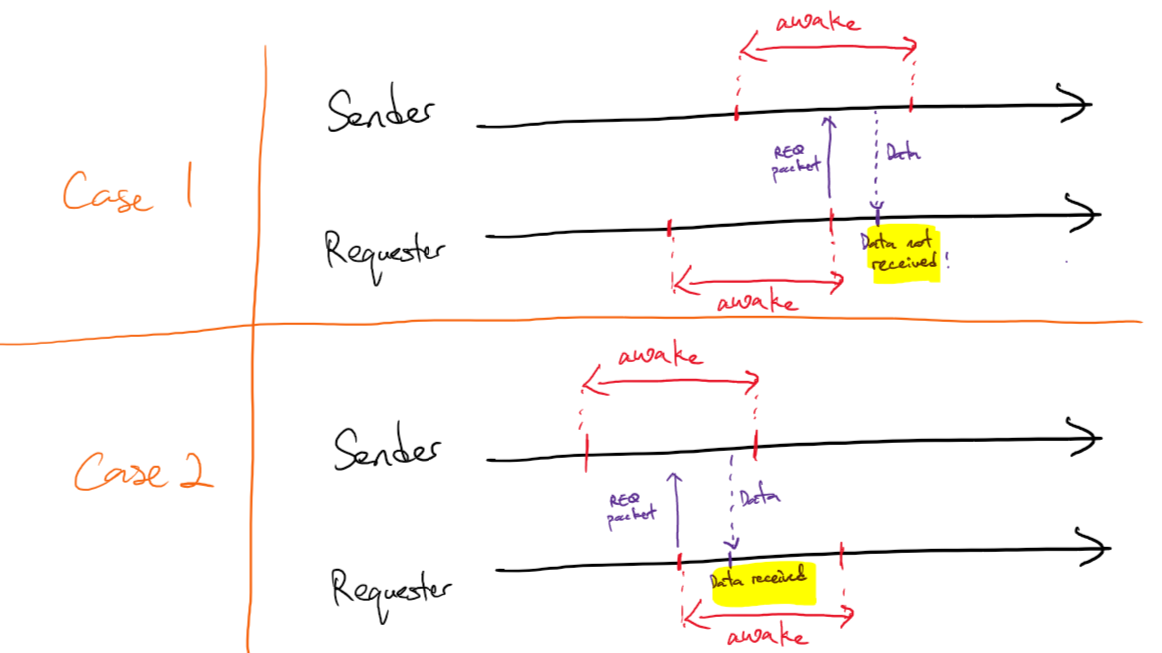 awake
Sender
Case 1
REQ
packet
Data
Requester
Data not
received!
awake
awake
Sender
Case 2
REQ
packet
Data
Requester
Data received
awake